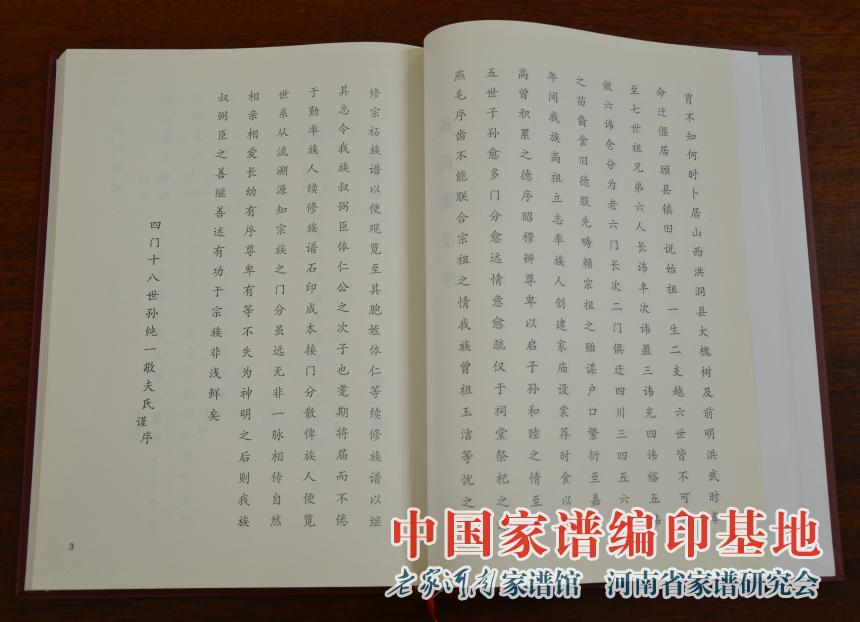 胄不知何时卜居山西洪洞县大槐树及前明洪武时奉
命迁偃居顾县镇旧说始祖一生二支越六世皆不可
至七世祖兄弟六人长讳丰次讳盈三讳充四讳裕五讳
做六讳仓分为老六门长次二门俱迁四川三四五六
之苗裔食旧德服先畴赖宗祖之贻谋户口繁衍至嘉
年间我族高祖立志率族人创建家庙设裳荐时食以
高曾积累之德序昭穆辨尊卑以启子孙和睦之情至
五世子孙愈多门分愈远情意愈疏仅于祠堂祭祀之
燕毛序齿不能联合宗祖之情我族曾祖玉洁等忧之
修宗祏族谱以便观览至其胞姪体仁等续修族谱以继
其志令我族叔弼臣体仁公之次子也耄期将届而不倦
于勤率族人续修族谱石印成本接门分散俾族人便览
世系从流溯源知宗族之门分虽远无非一脉相传自然
相亲相爱长幼有序尊卑有等不失为神明之后则我族
叔弼臣之善继善述有功于宗族非浅鲜矣
四门十八世孙纯一敬夫氏谨序
3
中国家谱编印基地
老家河南家谱馆 河南省家谱研究会